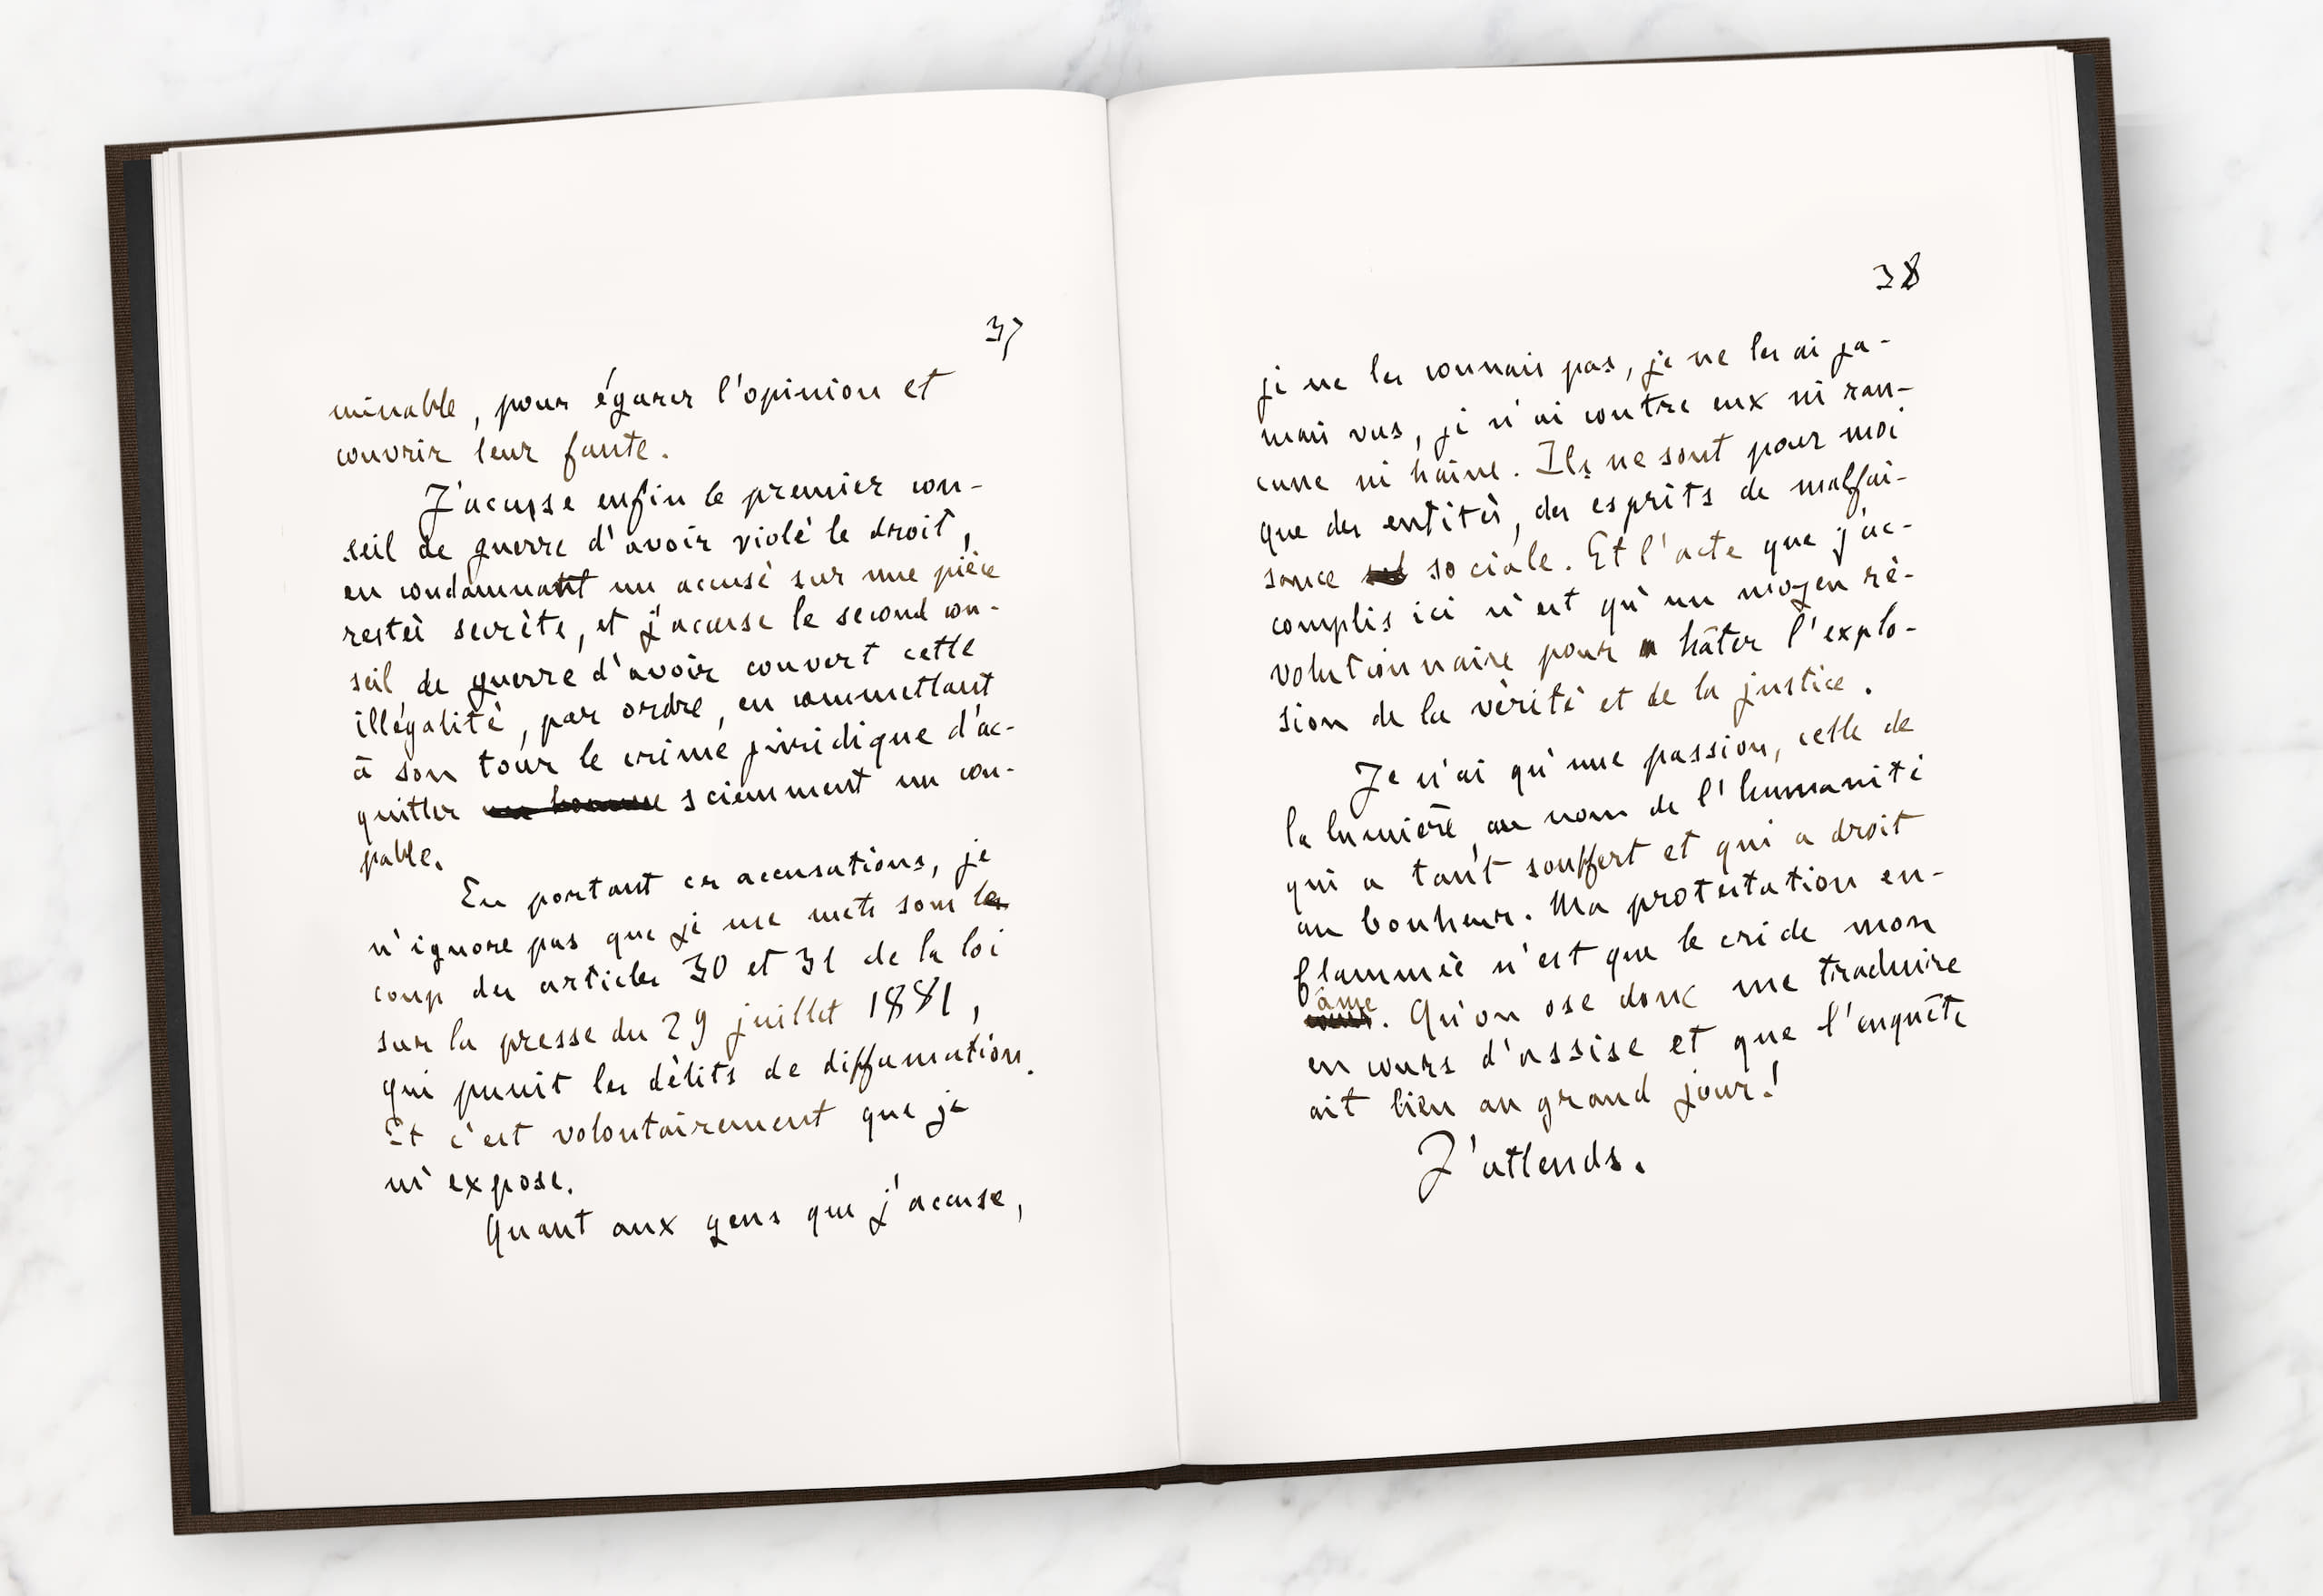 37
minable, pour égarer l'opinion et
couvrir leur faute.
J'accuse enfin le premier con-
seil de guerre d'avoir violé le droit,
en condamnant un accusé sur une pièce
restée secrète, et j'accuse le second con-
seil de guerre d'avoir couvert cette
illégalité, par ordre, en commettant
à son tour le crime juridique d'ac-
quitter un homme sciemment un cou-
pable.
En portant ces accusations, je
n'ignore pas que je me mets sous le
coup des articles 30 et 31 de la loi
sur la presse du 29 juillet 1881,
qui punit les délits de diffamation.
Et c'est volontairement que je
m'expose.
Quant aux gens que j'accuse,
38
je ne les connais pas, je ne les ai ja-
mais vus, je n'ai contre eux ni ran-
cune ni haine. Ils ne sont pour moi
que des entités, des esprits de malfai-
sance sociale. Et l'acte que j'ac-
complis ici n'est qu'un moyen ré-
volutionnaire pour hâter l'explo-
sion de la vérité et de la justice.
Je n'ai qu'une passion, celle de
la lumière, au nom de l'humanité
qui a tant souffert et qui a droit
au bonheur. Ma protestation en-
flammée n'est que le cri de mon
âme. Qu'on ose donc me traduire
en cours d'assise et que l'enquête
ait lieu au grand jour!
J'attends.